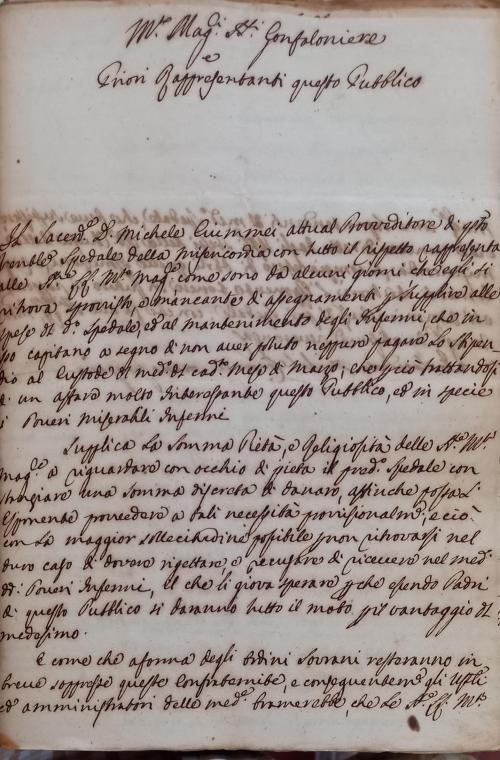 Mti. Mag.i Sri. Gonfaloniere
e
Priori Rappresentanti questo Pubblico
Il Sacerd.e D. Michele attual Provveditore di q.sto
Spedale della Misericordia con tutto il rispetto rappresenta
alle Mag.che come sono da alcuni giorni che egli si
ritrova sprovvisto, e mancante di assegnamenti p supplire alle
spese di d.o Spedale, ed al mantenimento degli Infermi, che in
capitano a segno di non aver potuto neppure pagare lo Stipen
dio al Custode di med.o di cad.te mese di Marzo; che p ciò trattandosi
di un affare molto interessante questo Pubblico, ed in specie
i Poveri Miserabili Infermi
Supplica la Somma Pietà, e Religiosità delle
Mag.e a riguardare con occhio di pietà il pred.o Spedale con
una somma discreta di danaro, affinche possa l'
Esponente provvedere a tali necessità provisionalm.e, e ciò
con la maggior sollecitudine possibile p non ritrovarsi nel
duro caso di dovere rigettare, e recusare di ricevere nel med.o
dd.i Poveri Infermi, il che li giova sperare p che essendo Padri
di questo Pubblico si daranno tutto il moto p il vantaggio di
medesimo.
E come che a forma degli Ordini Sovrani resteranno in
breve soppresse queste Confraternite, e conseguentem.e gli Ufizli
ed amministratori delle med.e bramerebbe, che le